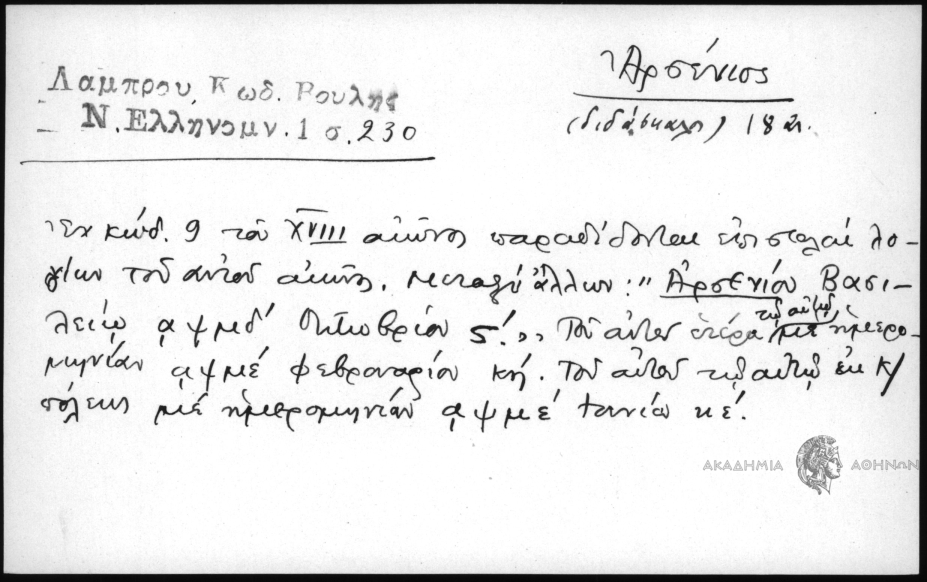 Λαμπρου, Κωδ. Βουλης
– Ν. Ελληνομν. 1 σ. 230
Ἀρσένιος
(διδάσκαλος) 18 αι.
Ἐν κώδ. 9 τοῦ XVIII αἰῶνος παραδίδονται ἐπιστολαί λο-
γίων τοῦ αὐτοῦ αἰῶνος. Μεταξύ ἄλλων: " Ἀρσενίου Βασι-
λείῳ ᾳψμδ' Ὀκτωβρίου 5'.,, Τοῦ αὐτοῦ ἑτέρα τῷ αὐτῷ μέ ἡμερο-
μηνίαν ᾳψμέ φεβρουαρίου κή. Τοῦ αὐτοῦ τῷ αὐτῷ ἐκ Κ/
πόλεως μέ ἡμερομηνίαν ᾳψμέ Ἰουνίου κέ.
ΑΚΑΔΗΜΙΑ ΑΘΗΝΩΝ